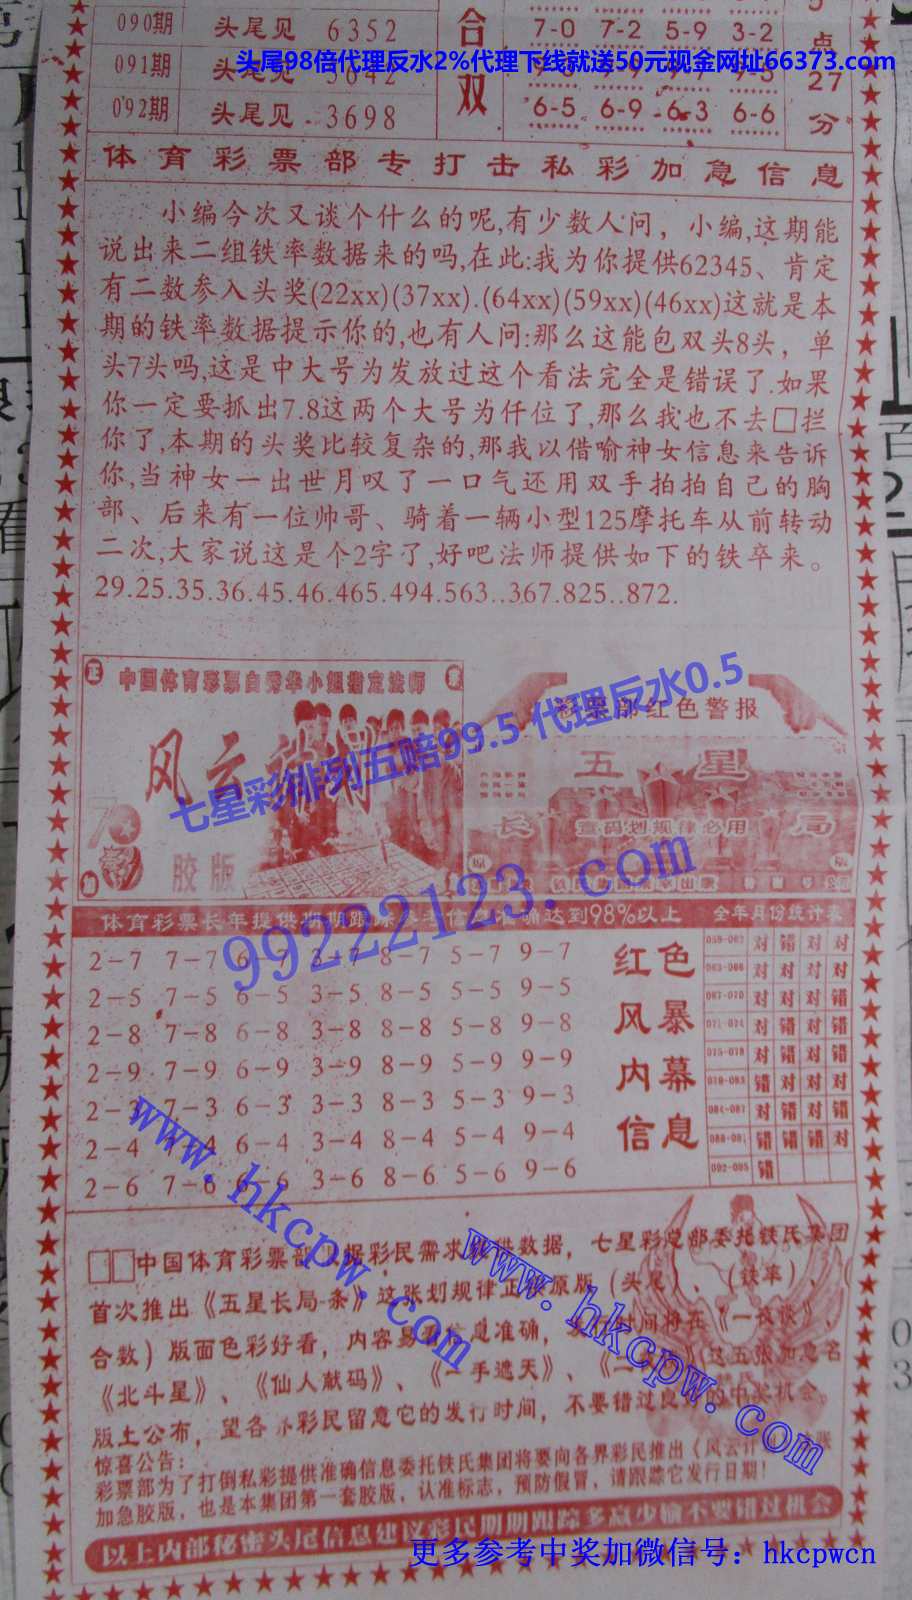 090期 头尾见 6352 合 7-0 7-2 5-9 3-2 5
头尾98倍代理反水2%代理下线就送50元现金网址66373.com
091期 头尾见 3642 点
27
092期 头尾见 3698 双 6-5 6-9 6-3 6-6 分
体育彩票部专打击私彩加急信息
小编今次又谈个什么的呢,有少数人问，小编,这期能
说出来二组铁率数据来的吗,在此:我为你提供62345、肯定
有二数参入头奖(22xx)(37xx).(64xx)(59xx)(46xx)这就是本
期的铁率数据提示你的,也有人问:那么这能包双头8头，单
头7头吗,这是中大号为发放过这个看法完全是错误了.如果
你一定要抓出7.8这两个大号为仟位了,那么我也不去□拦
你了,本期的头奖比较复杂的,那我以借喻神女信息来告诉
你,当神女一出世月叹了一口气还用双手拍拍自己的胸
部、后来有一位帅哥、骑着一辆小型125摩托车从前转动
二次,大家说这是个2字了,好吧法师提供如下的铁卒来。
29.25.35.36.45.46.465.494.563..367.825..872.
正 中国体育彩票白秀华小姐指定法师
风云
胶版
彩票部红色警报
五星
长 查码划规律必用 局
原 版
七星彩排列五赔99.5 代理反水0.5
99222123.com
体育彩票长年提供期期跟踪参考信息准确达到98%以上 全年月份统计表
2-7 7-7 6-7 3-7 8-7 5-7 9-7
2-5 7-5 6-5 3-5 8-5 5-5 9-5
2-8 7-8 6-8 3-8 8-8 5-8 9-8
2-9 7-9 6-9 3-9 8-9 5-9 9-9
2-3 7-3 6-3 3-3 8-3 5-3 9-3
2-4 7-4 6-4 3-4 8-4 5-4 9-4
2-6 7-6 6-6 3-6 8-6 5-6 9-6
红色
风暴
内幕
信息
059-062 对 错 对 对
063-066 对 对 对 对
067-070 对 对 对 错
071-074 对 错 对 错
075-078 对 错 对 错
079-083 错 对 对 对
084-087 对 错 对 错
088-091 错 错 错 对
092-095 错
www.hkcpw.com
www.hkcpw.com
□□中国体育彩票部 据彩民需求提供数据，七星彩总部委托铁氏集团
首次推出《五星长局-条》这张划规律正版原版（头尾）、（铁率）、（
合数）版面色彩好看，内容易看信息准确，发行时间将在《一夜张》、
《北斗星》、《仙人献码》、《一手遮天》、《一 》（这五张加急名
版土公布，望各 彩民留意它的发行时间，不要错过良好的中奖机会。
惊喜公告：
彩票部为了打倒私彩提供准确信息委托铁氏集团将要向各界彩民推出《风云 张
加急胶版，也是本集团第一套胶版，认准标志，预防假冒，请跟踪它发行日期！
以上内部秘密头尾信息建议彩民期期跟踪多赢少输不要错过机会
更多参考中奖加微信号：hkcpwcn